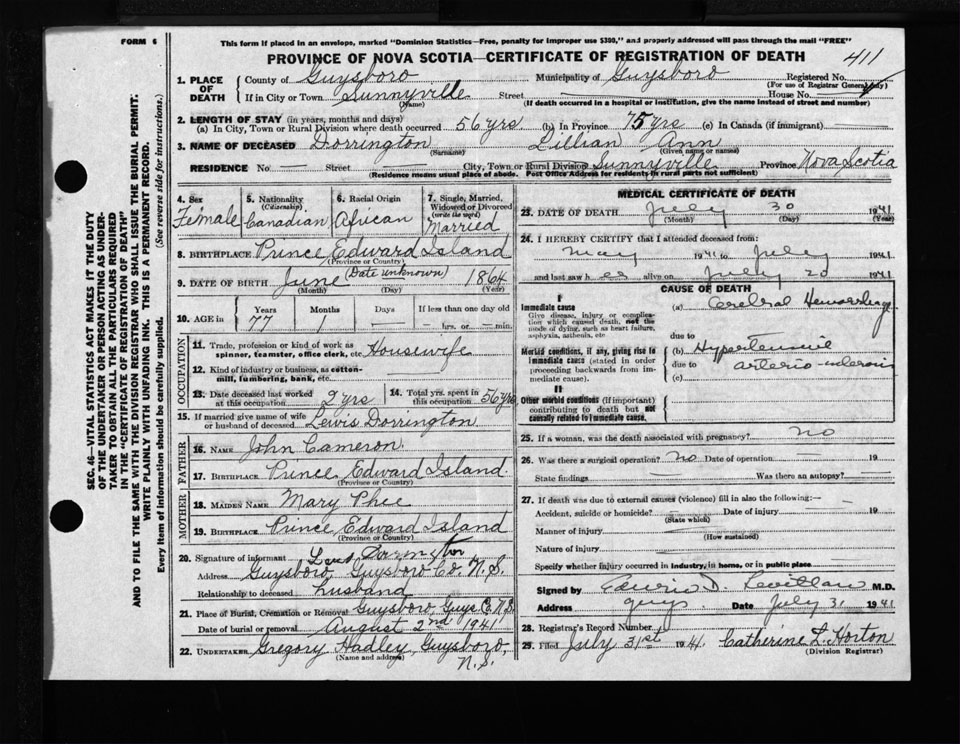 FORM 6
This form if placed in an envelope, marked "Dominion Statistics—Free, penalty for improper use $300," and properly addressed will pass through the mail "FREE"
PROVINCE OF NOVA SCOTIA—CERTIFICATE OF REGISTRATION OF DEATH
411
1. PLACE OF DEATH
County of Guysboro Municipality of Guysboro Registered No.
(For use of Registrar General only)
If in City or Town Sunnyville Street — House No.
(Name) (If death occurred in a hospital or institution, give the name instead of street and number)
2. LENGTH OF STAY (in years, months and days)
(a) In City, Town or Rural Division where death occurred 56 yrs (b) In Province 75 yrs (c) In Canada (if immigrant) —
3. NAME OF DECEASED Dorrington Lillian Ann
(Surname) (Given name or names)
RESIDENCE No. — Street City, Town or Rural Division Sunnyville Province Nova Scotia
(Residence means usual place of abode. Post Office Address for residents in rural parts not sufficient)
4. Sex
Female
5. Nationality
(Citizenship)
Canadian
6. Racial Origin
African
7. Single, Married, Widowed or Divorced
(write the word)
Married
8. BIRTHPLACE Prince Edward Island
(Province or Country)
9. DATE OF BIRTH June (Date unknown) 1864
(Month) (Day) (Year)
10. AGE in
Years Months Days If less than one day old
77 1 — — hrs. or — min.
OCCUPATION
11. Trade, profession or kind of work as spinner, teamster, office clerk, etc. Housewife
12. Kind of industry or business, as cotton-mill, lumbering, bank, etc.
13. Date deceased last worked at this occupation 2 yrs
14. Total yrs. spent in this occupation 56 yrs
15. If married give name of wife or husband of deceased Lewis Dorrington
FATHER
16. NAME John Cameron
17. BIRTHPLACE Prince Edward Island
(Province or Country)
MOTHER
18. MAIDEN NAME Mary Phee
19. BIRTHPLACE Prince Edward Island
(Province or Country)
20. Signature of informant Dorrington
Address Guysboro, Guysboro Co. N.S.
Relationship to deceased husband
21. Place of Burial, Cremation or Removal Guysboro Guys Co. N.S.
Date of burial or removal August 2nd 1941
22. UNDERTAKER Gregory Hadley, Guysboro, N.S.
(Name and address)
MEDICAL CERTIFICATE OF DEATH
23. DATE OF DEATH July 30 1941
(Month) (Day) (Year)
24. I HEREBY CERTIFY that I attended deceased from:
May 1941 to July 1941
and last saw h er alive on July 20 1941
CAUSE OF DEATH
I
Immediate cause (a) Cerebral Hemorrhage
Give disease, injury or complication which caused death, not the mode of dying, such as heart failure, asphyxia, asthenia, etc.
due to
Morbid conditions, if any, giving rise to immediate cause (stated in order proceeding backwards from immediate cause).
(b) Hypertensive
due to arterio-sclerosis
(c)
II
Other morbid conditions (if important) contributing to death but not causally related to immediate cause.
25. If a woman, was the death associated with pregnancy? no
26. Was there a surgical operation? no Date of operation — 19
State findings — Was there an autopsy?
27. If death was due to external causes (violence) fill in also the following:—
Accident, suicide or homicide? — Date of injury — 19
(State which)
Manner of injury —
(How sustained)
Nature of injury —
Specify whether injury occurred in industry, in home, or in public place
Signed by M.D.
Address Guys Date July 31 1941
28. Registrar's Record Number
29. Filed July 31st 1941. Catherine L. Horton
(Division Registrar)
SEC. 46—VITAL STATISTICS ACT MAKES IT THE DUTY
OF THE UNDERTAKER OR PERSON ACTING AS UNDER-
TAKER TO OBTAIN ALL THE PARTICULARS REQUIRED
IN THE "CERTIFICATE OF REGISTRATION OF DEATH"
AND TO FILE THE SAME WITH THE DIVISION REGISTRAR WHO SHALL ISSUE THE BURIAL PERMIT.
WRITE PLAINLY WITH UNFADING INK. THIS IS A PERMANENT RECORD.
Every item of information should be carefully supplied. (See reverse side for instructions.)